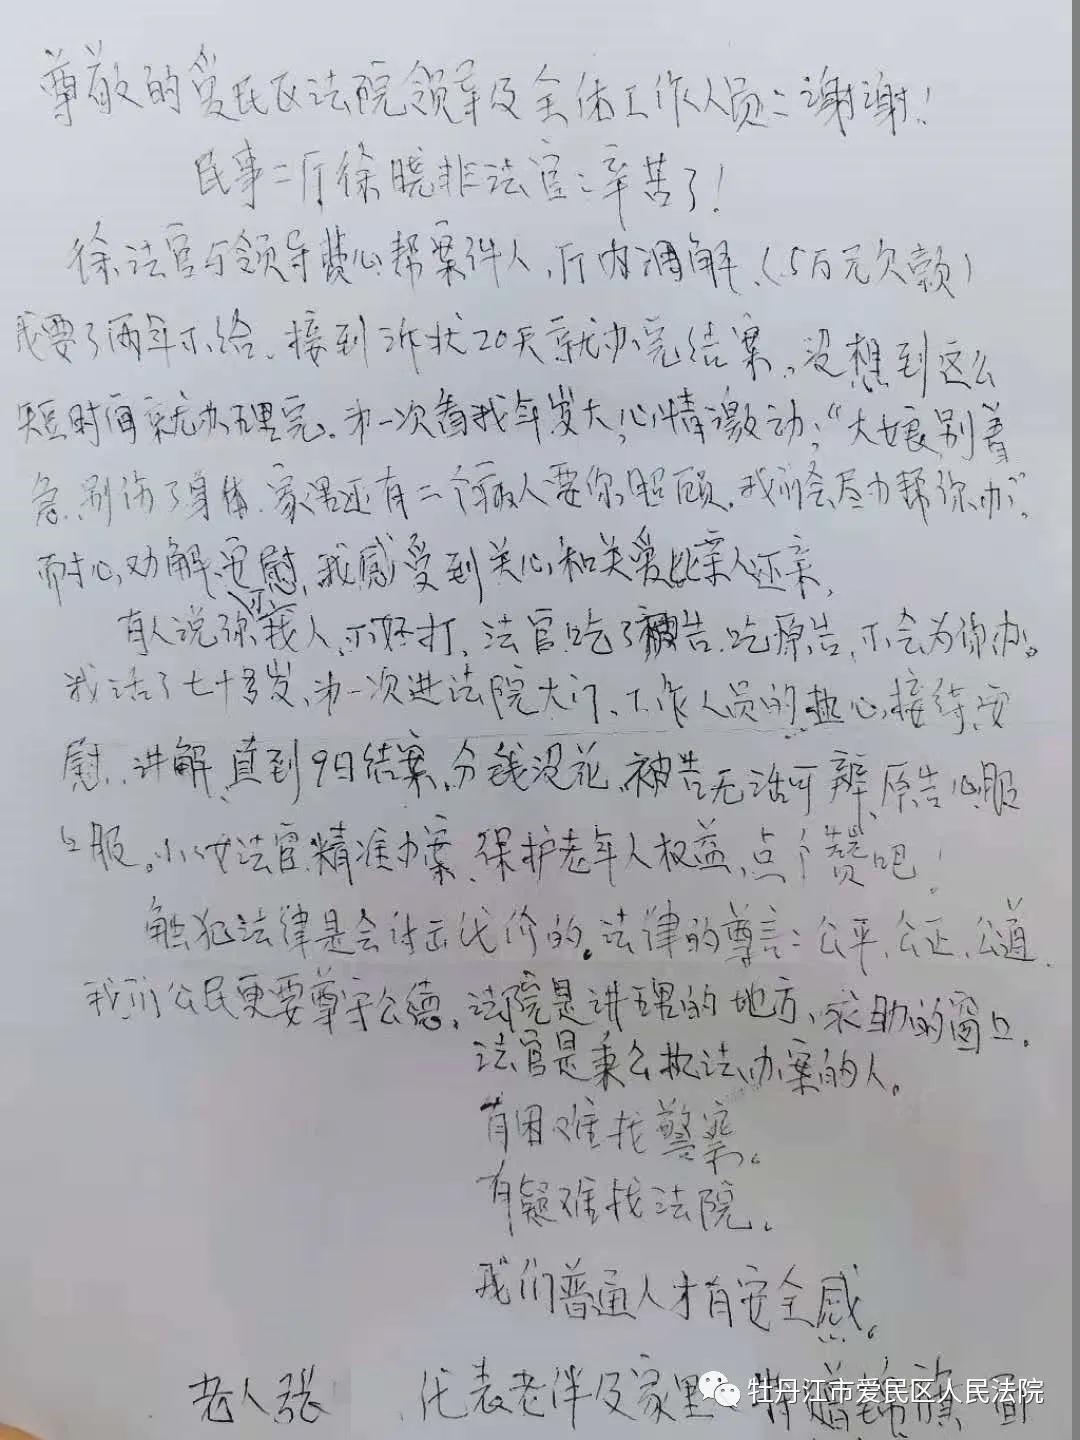 尊敬的爱民区法院领导及全体工作人员：谢谢！
民事二厅徐晓非法官：辛苦了！
徐法官与领导费心帮案件人、厅内调解、（5万元欠款）
我要了两年不给、接到诉状20天就办完结案，没想到这么
短时间就办理完。第一次看我年岁大，心情激动，“大娘别着
急、别伤了身体、家里还有二个病人要你照顾、我们会尽力帮你办”。
耐心劝解、安慰，我感受到关心和关爱比亲人还亲。
有人说你找人、不好打，法官吃了被告、吃原告、不会为你办。
我活了七十多岁、第一次进法院大门、工作人员的热心接待、安
慰、讲解、直到9日结案，分钱没花、被告无话可辨、原告心服
口服。小女法官精准办案、保护老年人权益、点个赞吧！
触犯法律是会付出代价的。法律的尊言：公平、公正、公道、
我们公民更要尊守公德，法院是讲理的地方、求助的窗口。
法官是秉公执法办案的人。
有困难找警察。
有疑难找法院。
我们普通人才有安全感。
老人张 代表老伴及家里 特赠锦旗一面
牡丹江市爱民区人民法院